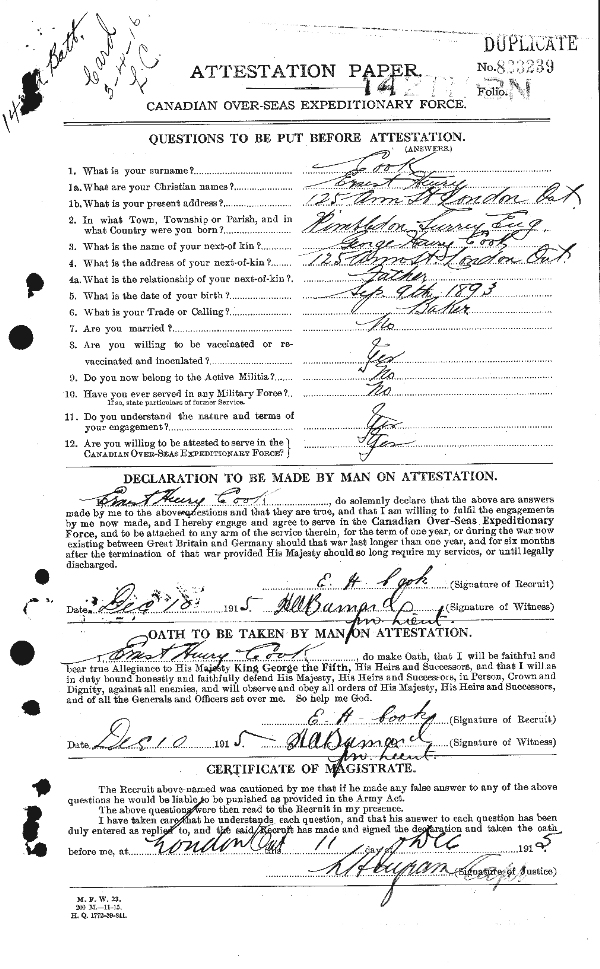 142nd Batt.
Card
3-4-16
L.C.
DUPLICATE
ATTESTATION PAPER.
No. 823239
Folio.
CANADIAN OVER-SEAS EXPEDITIONARY FORCE.
QUESTIONS TO BE PUT BEFORE ATTESTATION.
(ANSWERS.)
1. What is your surname? Cook
1a. What are your Christian names? Ernest Henry
1b. What is your present address? 125 Ann St London Ont
2. In what Town, Township or Parish, and in
what Country were you born? Wimbledon Surrey Eng
3. What is the name of your next-of kin? George Henry Cook
4. What is the address of your next-of-kin? 125 Ann St. London Ont
4a. What is the relationship of your next-of-kin? Father
5. What is the date of your birth? Sep 9th 1893
6. What is your Trade or Calling? Baker
7. Are you married? No
8. Are you willing to be vaccinated or re-
vaccinated and inoculated? Yes
9. Do you now belong to the Active Militia? No
10. Have you ever served in any Military Force? No
If so, state particulars of former Service.
11. Do you understand the nature and terms of
your engagement? Yes
12. Are you willing to be attested to serve in the
CANADIAN OVER-SEAS EXPEDITIONARY FORCE? Yes
DECLARATION TO BE MADE BY MAN ON ATTESTATION.
Ernest Henry Cook, do solemnly declare that the above are answers
made by me to the above questions and that they are true, and that I am willing to fulfil the engagements
by me now made, and I hereby engage and agree to serve in the Canadian Over-Seas Expeditionary
Force, and to be attached to any arm of the service therein, for the term of one year, or during the war now
existing between Great Britain and Germany should that war last longer than one year, and for six months
after the termination of that war provided His Majesty should so long require my services, or until legally
discharged.
E. H Cook (Signature of Recruit)
Date Dec 10 1915 (Signature of Witness)
Lieut.
OATH TO BE TAKEN BY MAN ON ATTESTATION.
Ernest Henry Cook, do make Oath, that I will be faithful and
bear true Allegiance to His Majesty King George the Fifth, His Heirs and Successors, and that I will as
in duty bound honestly and faithfully defend His Majesty, His Heirs and Successors, in Person, Crown and
Dignity, against all enemies, and will observe and obey all orders of His Majesty, His Heirs and Successors,
and of all the Generals and Officers set over me. So help me God.
E. H Cook (Signature of Recruit)
Date Dec 10 1915 (Signature of Witness)
Lieut.
CERTIFICATE OF MAGISTRATE.
The Recruit above-named was cautioned by me that if he made any false answer to any of the above
questions he would be liable to be punished as provided in the Army Act.
The above questions were then read to the Recruit in my presence.
I have taken care that he understands each question, and that his answer to each question has been
duly entered as replied to, and the said Recruit has made and signed the declaration and taken the oath
before me, at London Ont this 11 day of Dec 1915
(Signature of Justice)
M. F. W. 23.
200 M.—11-15.
H. Q. 1772-39-841.